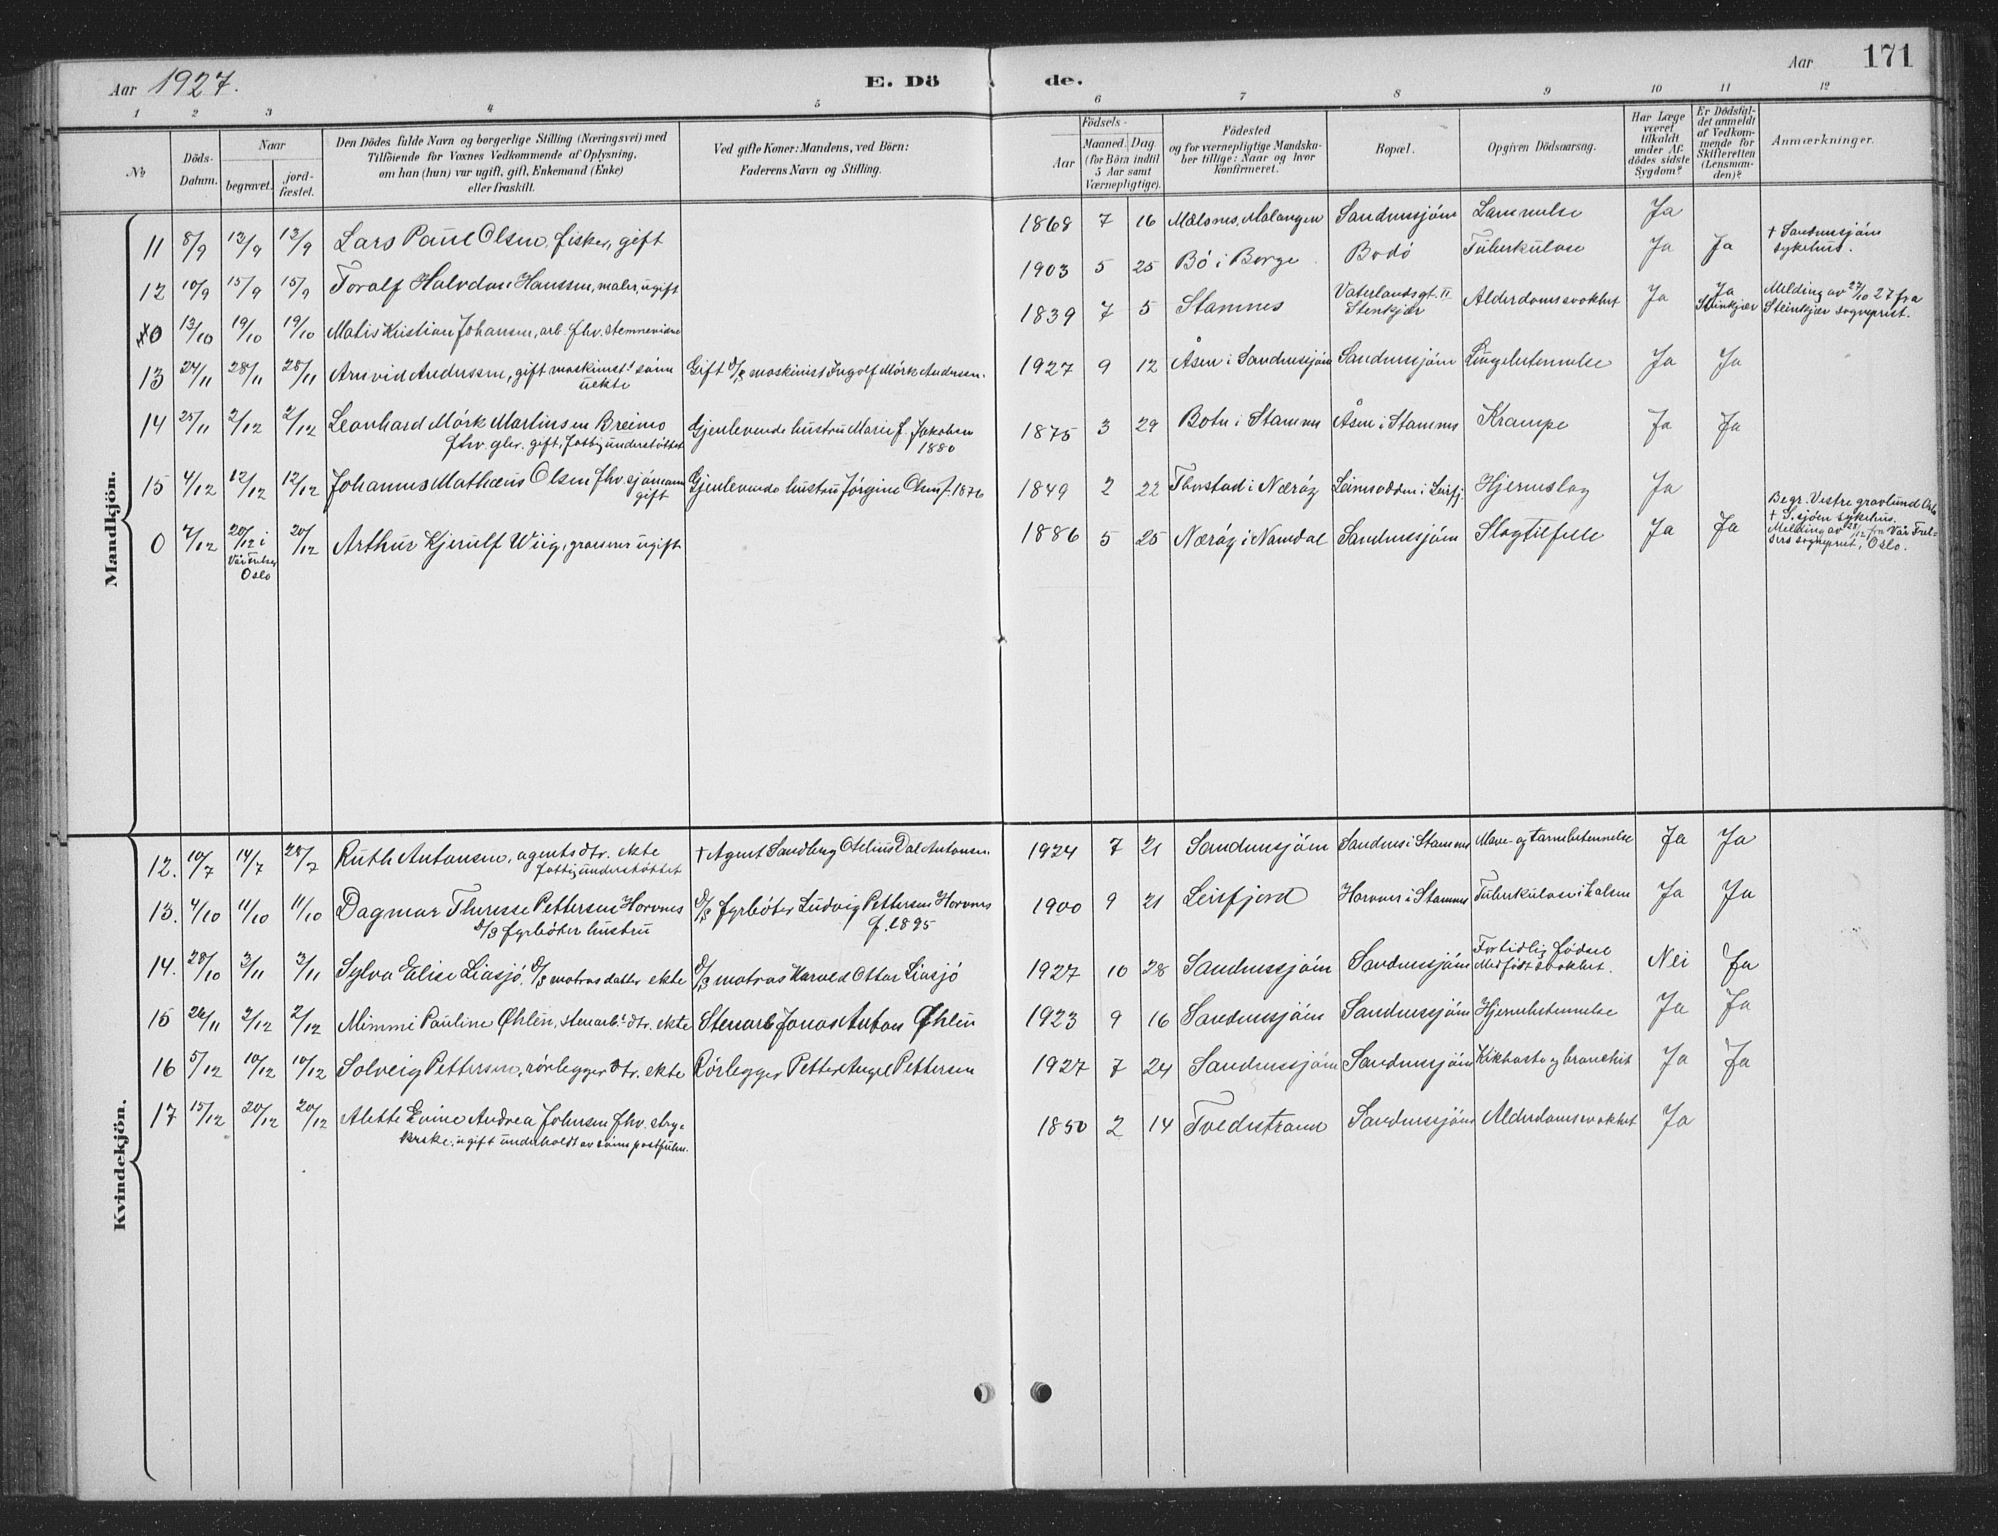 Aar 1927.
E. Dö
de.
Aar
171
1 2 3 4 5 6 7 8 9 10 11 12
No
Döds-Datum.
Naar
begravet.
jord-fæstet.
Den Dödes fulde Navn og borgerlige Stilling (Næringsvei) med
Tilföiende for Voxnes Vedkommende af Oplysning,
om han (hun) var ugift, gift, Enkemand (Enke)
eller fraskilt.
Ved gifte Koner: Mandens, ved Börn:
Faderens Navn og Stilling.
Födsels-
Aar
Maaned. Dag.
(for Börn indtil
5 Aar samt
Værnepligtige).
Födested
og for værnepligtige Mandska-
ber tillige: Naar og hvor
konfirmeret.
Bopæl.
Opgiven Dödsaarsag.
Har Læge
været
tilkaldt
under Af-
dödes sidste
Sygdom?
Er Dödsfal-
det anmeldt
af Vedkom-
mende for
Skifteretten
(Lensman-
den)?
Anmærkninger.
Mandkjön.
11 8/9 13/9 13/9 Lars Paul Olsen, fisker, gift 1868 7 16 Målsnes, Malangen Sandnessjøen Lammelse Ja
† Sandnessjøen
sykehus.
12 10/9 15/9 15/9 Toralf Halvdan Hanssen, maler, ugift 1903 5 25 Bö i Borge Bodö Tuberkulose Ja Ja
0 13/10 19/10 19/10 Matis Kristian Johansen, arb. fhv. stemnevidne 1839 7 5 Stamnes Vaterlandsgt. 11
Stenkjær Alderdomssvakhet Ja Ja
Steinkjær
Melding av 27/10 27 fra
Steinkjær sogneprest.
13 24/11 28/11 28/11 Arnvid Anderssen, gift maskinist sönn
uekte
Gift maskinist Ingolf Mörk Andersen. 1927 9 12 Åsen i Sandnessjøen Sandnessjøen Lungebetennelse Ja Ja
14 25/11 2/12 2/12 Leonhard Mörk Martinsen Breimo
fhv. gbr. gift, fattigunderstöttet
Gjenlevende hustru Marie f. Jakobsen
1880
1875 3 29 Botn i Stamnes Åsen i Stamnes Krampe Ja Ja
15 4/12 12/12 12/12 Johannes Mathæus Olsen fhv. sjömann
gift
Gjenlevende hustru Jörgine Olsen f. 1876 1849 2 22 Thorstad i Næröy Leinesodden i Leirfj. Hjerneslag Ja
0 7/12 20/12 i
Vår Frelser
Oslo
20/12 Arthur Kjerulf Wiig, grosserer ugift 1886 5 25 Næröy i Namdal Sandnessjøen Slagtilfelle Ja Ja
Begr. Vestre gravlund Oslo
† S.sjøen sykehus.
Melding av 28/12 fra Vår Frel-
sers sogneprest, Oslo.
Kvindekjön.
12. 10/7 14/7 28/7 Ruth Antonsen, agents dtr. ekte
fattigunderstöttet
† Agent Sandberg Otelius Dal Antonsen. 1924 7 21 Sandnessjøen Sandnes i Stamnes Mave- og tarmbetennelse Ja Ja
13. 4/10 11/10 11/10 Dagmar Therese Pettersen Horvnes
D/S fyrböter hustru
D/S fyrböter Ludvig Pettersen Horvnes
f. 1895
1900 9 21 Leirfjord Horvnes i Stamnes Tuberkulose i halsen Ja Ja
14. 28/10 3/11 3/11 Sylva Elise Liasjö, D/S matros datter ekte D/S matros Harald Ottar Liasjö 1927 10 28 Sandnessjøen Sandnessjøen Fortidlig födsel
Medfödt svakhet. Nei Ja
15 26/11 2/12 2/12 Mimmi Pauline Øhlen, stenarb. dtr. ekte Stenarb. Jonas Anton Øhlen 1923 9 16 Sandnessjøen Sandnessjøen Hjernebetennelse Ja Ja
16 5/12 10/12 10/12 Solveig Pettersen, rørlegger dtr. ekte Rørlegger Petter Angel Pettersen 1927 7 24 Sandnessjøen Sandnessjøen Kikhoste og bronchit Ja Ja
17 15/12 20/12 20/12 Alette Evine Andrea Johnsen fhv. stry-
kerske, ugift underholdt av sönn postfullm. 1850 2 14 Tvedestrand Sandnessjøen Alderdomssvakhet Ja